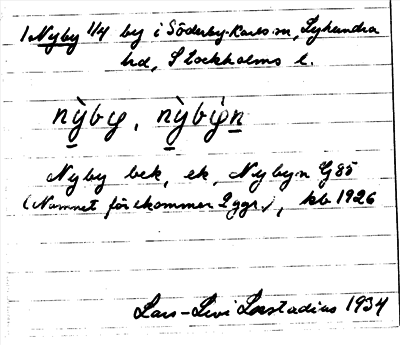 1 Nyby 1/4 by i Söderby-Karls sn, Lyhundra
hd, Stockholms l.
nỳby, nỳby̆n
Nyby bek, ek, Nybyn G 85
(Namnet förekommer 2 ggr.), kb 1926
Lars-Levi Læstadius 1934